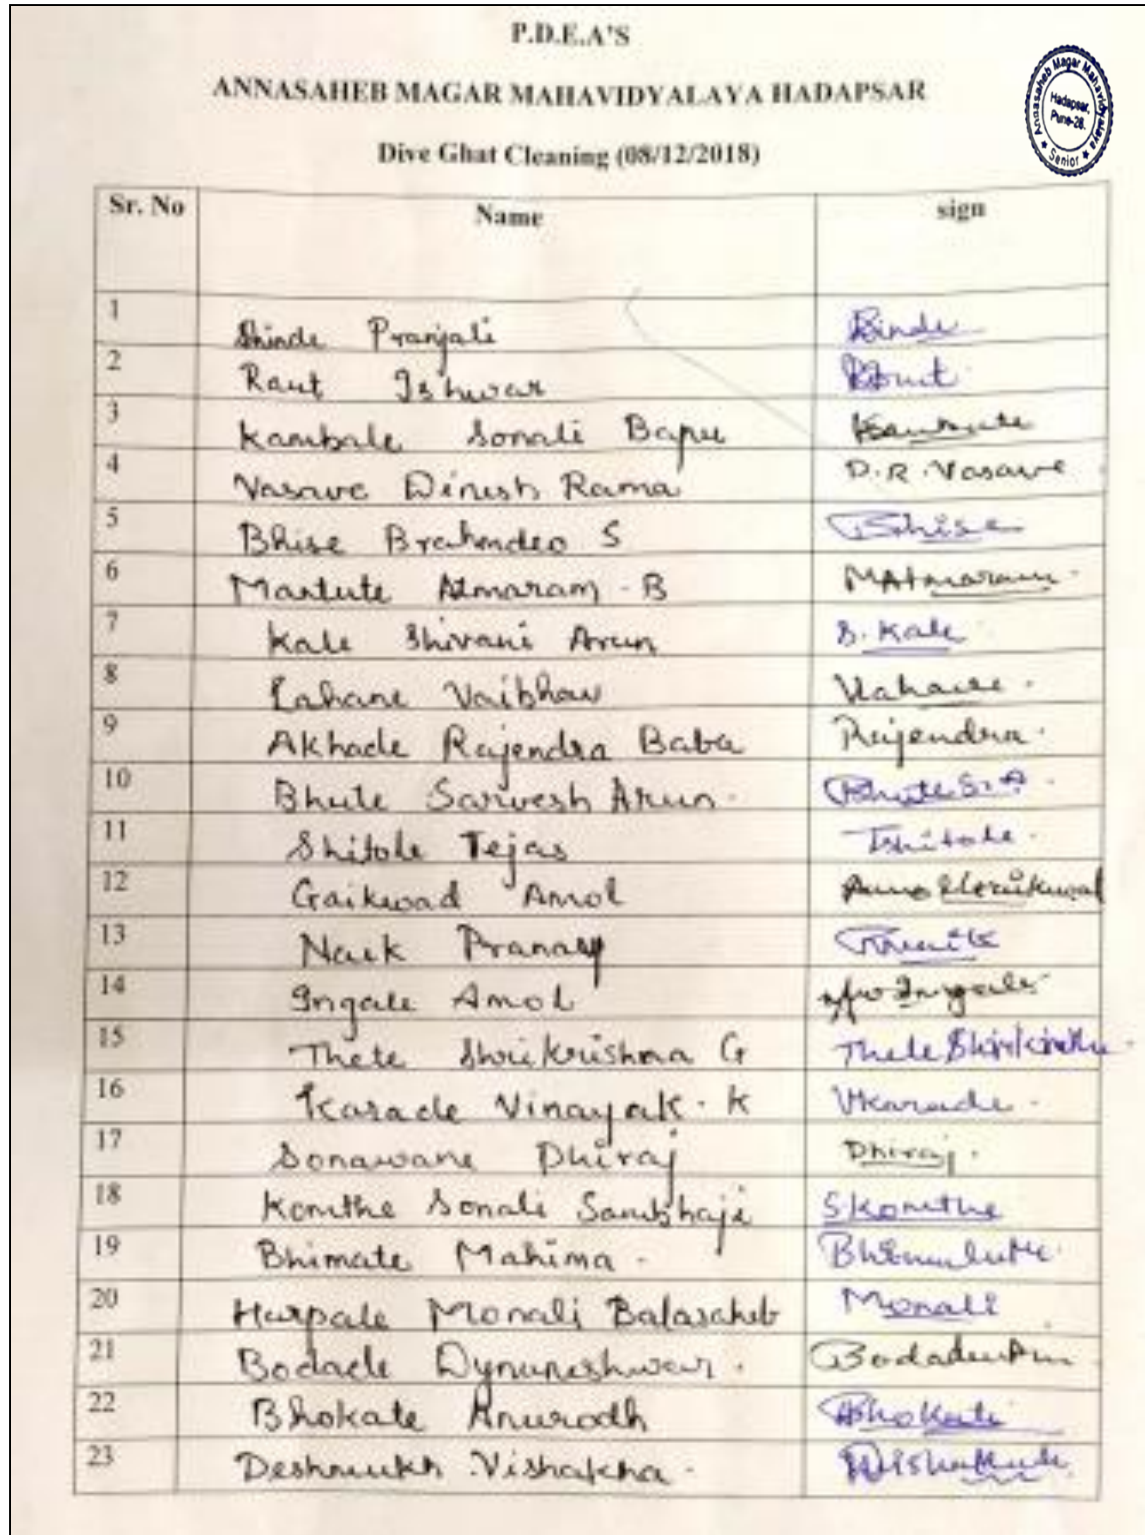 P.D.E.A'S
ANNASAHEB MAGAR MAHAVIDYALAYA HADAPSAR
Annasaheb Magar Mahavidyalaya
Hadapsar,
Pune-28.
★ Senior ★
Dive Ghat Cleaning (08/12/2018)
Sr. No Name sign
1 Shinde Pranjali
2 Raut Ishwar Raut
3 Kambale Sonali Bapu
4 Vasave Dinesh Rama D.R. Vasave
5 Bhise Brahmdeo S Bhise
6 Martute Atmaram - B MAtmaram.
7 Kale Shivani Arun S. Kale
8 Lahane Vaibhav
9 Akhade Rajendra Baba Rajendra.
10 Bhute Sarvesh Arun. Bhute S.A.
11 Shitole Tejas Tshitole.
12 Gaikwad Amol
13 Naik Pranay
14 Ingale Amol Ingale
15 Thete Shrikrishna G Thete
16 Karade Vinayak. K VKarade.
17 Sonawane Dhiraj Dhiraj.
18 Komthe Sonali Sambhaji SKomthe
19 Bhimate Mahima -
20 Harpale Monali Balasaheb Monali
21 Bodade Dynuneshwar.
22 Bhokate Anurodh Bhokate
23 Deshmukh Vishakha.